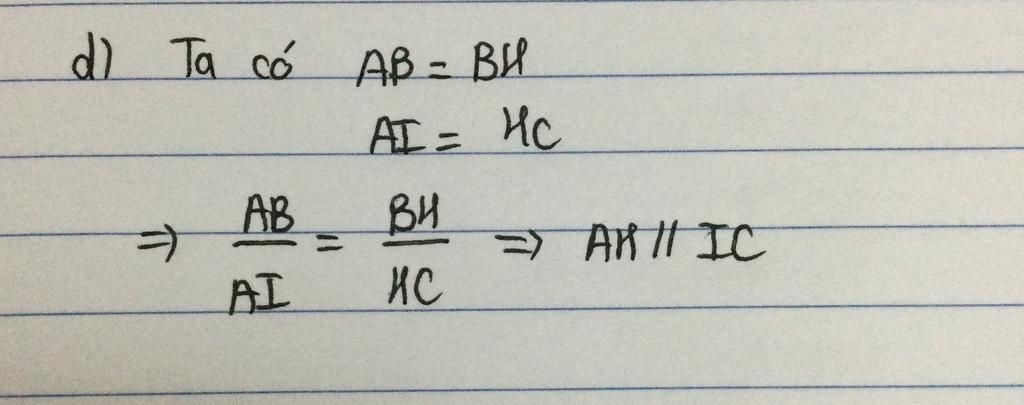 d) Ta có AB = BH
AI = HC
=> AB/AI = BH/HC => AH // IC